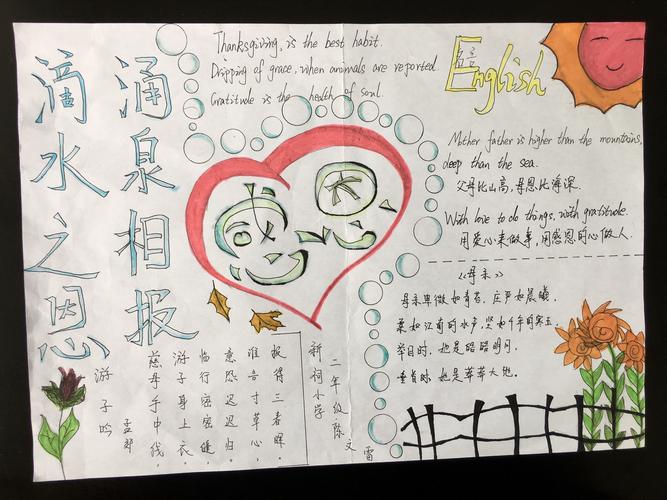 滴水之恩
涌泉相报
Thanksgiving, is the best habit.
Dripping of grace, when animals are reported
Gratitude is the health of soul.
English
Mother father is higher than the mountains,
deep than the sea.
父母比山高,母恩比海深.
With love to do things, with gratitude.
用爱心来做事,用感恩的心做人.
《母亲》
母亲卑微如青苔,庄严如晨曦,
柔如江南的水声,坚如千年的寒玉.
举目时,她是皓皓明月.
垂首时,她是莽莽大地.
感恩
游子吟
孟郊
慈母手中线,
游子身上衣,
临行密密缝,
意恐迟迟归.
谁言寸草心,
报得三春晖.
新祠小学
二年级陈